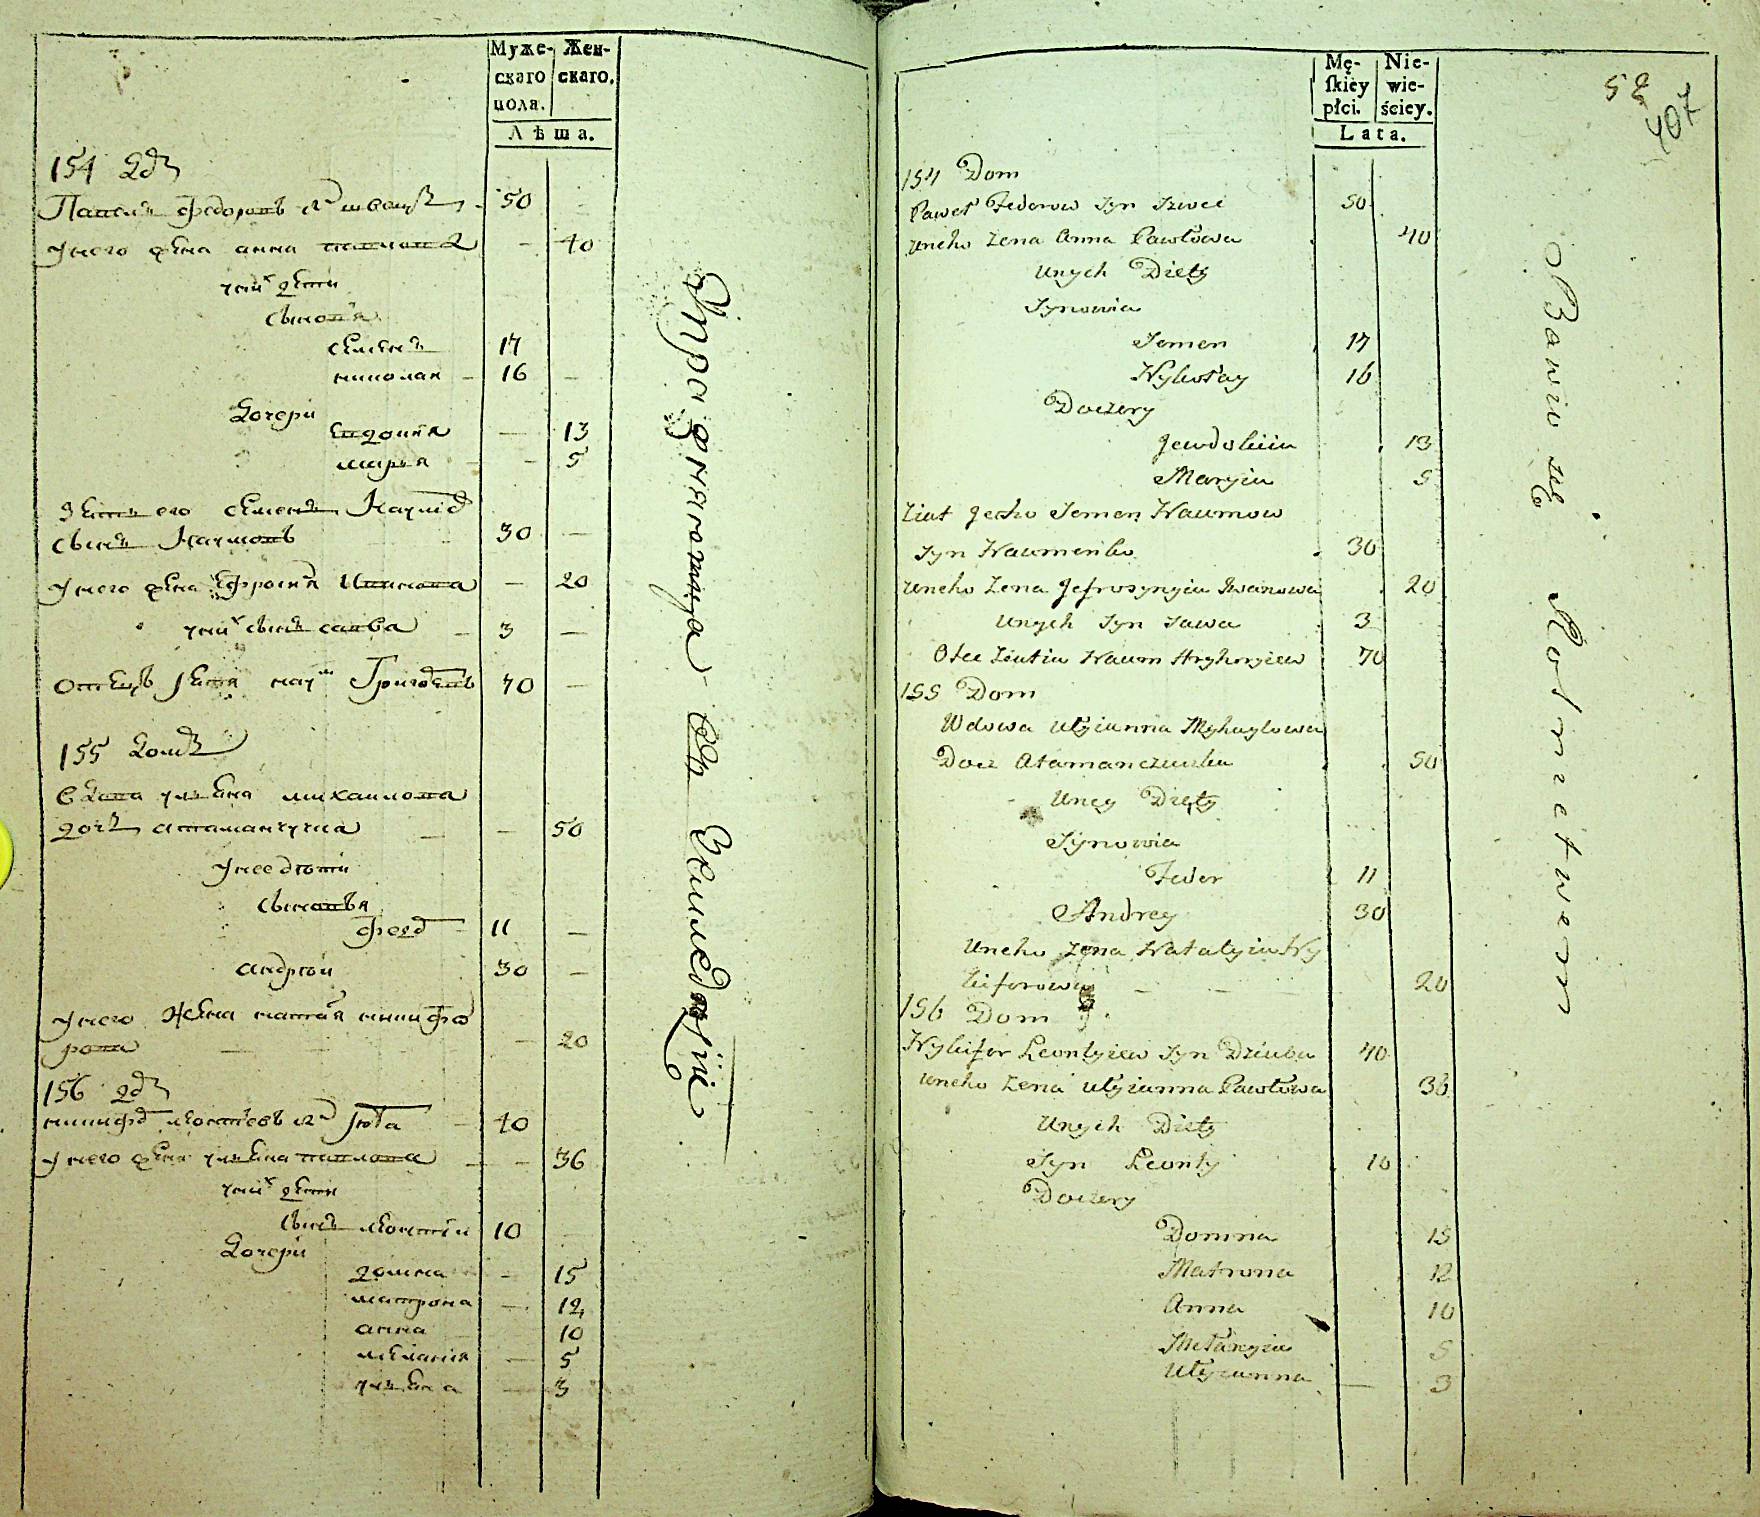 Муже-
скаго
пола.
Жен-
скаго.
Лѣта.
154 дѣ
Павелъ федоровъ сн швецъ 50
Унего жена анна павлова 40
унихъ дети
сыновя
семенъ 17
николай 16
дочери
евдокия 13
марья 5
зеть его семенъ Наумовъ
сынъ Наумовъ 30
Унего жена Ефросиня Иванова 20
унихъ сынъ савва 3
отецъ зетя наумъ Григоревъ 70
155 домъ
вдова улѣяна михаилова
дочь атаманчучка 50
Унее дѣти
сыновья
федоръ 11
андрѣй 30
Унего Жена наталя никифо
рова 20
156 дѣ
никифоръ леонтѣевъ сн дзюба 40
Унего жена улѣяна павлова 36
унихъ дети
сынъ леонтий 10
дочери
домна 15
матрона 12
анна 10
мелания 5
улѣяна 3
Упражняютца въ земледелие
Mę-
ſkiey
płci.
Nie-
wie-
ściey.
Lata.
52
407
154 Dom
Paweł Fedorow Syn Szwec 50
Uneho Zena Anna Pawłowa 40
Unych Diety
Synowia
Semen 17
Nykołay 16
Doczery
Jewdokiia 13
Maryia 5
Ziat Jecho Semen Naumow
Syn Naumenko 30
Uneho Zena Jefrosynyia Iwanowa 20
Unych Syn Sawa 3
Otec Ziatia Naum Hryhoryiew 70
155 Dom
Wdowa Ulyianna Myhayłowa
Docz Atamanczuczka 50
Uney Diety
Synowia
Fedor 11
Andrey 30
Uneho Zena Natalyia Ny
kiforowa 20
156 Dom
Nykifor Leontyiew Syn Dziuba 40
Uneho Zena Ulyianna Pawłowa 36
Unych Diety
Syn Leonty 10
Doczery
Domna 15
Matrona 12
Anna 10
Mełanyia 5
Ulyianna 3
Bawio się Rolnictwem